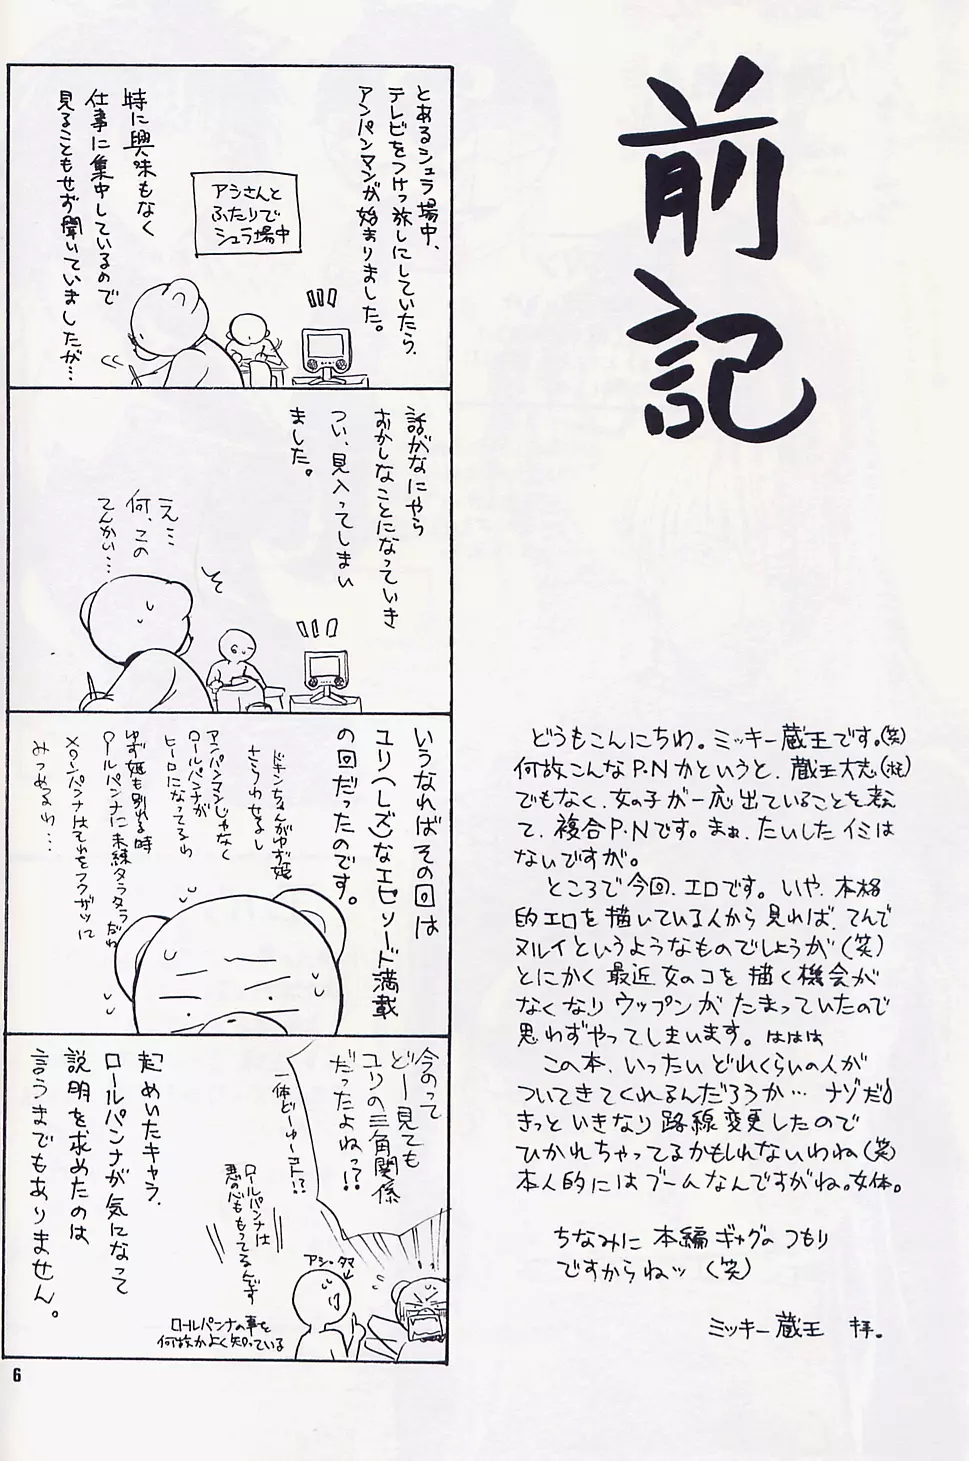 前記
どうもこんにちわ。ミッキー蔵王です。(笑)
何故こんなP.Nかというと、蔵王大志(※)
でもなく、女の子が一応出ていることを考え
て、複合P・Nです。まぁ、たいしたイミは
ないですが。
ところで今回、エロです。いや、本格
的エロを描いている人から見れば、てんで
ヌルイというようなものでしょうが(笑)
とにかく最近女のコを描く機会が
なくなりウップンがたまっていたので
思わずやってしまいます。ははは
この本、いったいどれくらいの人が
ついてきてくれるんだろうか…ナゾだ♪
きっといきなり路線変更したので
ひかれちゃってるかもしれないわね(笑)
本人的にはブームなんですがね。女体。
ちなみに本編ギャグのつもり
ですからねッ(笑)
ミッキー蔵王 拝。
とあるシュラ場中、
テレビをつけっ放しにしていたら、
アンパンマンが始まりました。
アシさんと
ふたりで
シュラ場中
特に興味もなく
仕事に集中しているので
見ることもせず聞いていましたが…
話がなにやら
おかしなことになっていき
つい、見入ってしまい
ました。
え…
何、この
てんかい…
いうなればその回は
ユリ(レズ)なエピソード満載
の回だったのです。
ドキンちゃんがゆず姫
さらわせるし
アンパンマンじゃなく
ロールパンナが
ヒーローになってるわ
ゆず姫も別れる時
ロールパンナに未練タラタラだわ
メロンパンナはそれをフクザツに
みつめるわ…
今のって
どー見ても
ユリの三角関係
だったよねっ?!
一体どーゆーコト!?
ロールパンナは
悪の心ももってるんです
アシ・タマ
ロールパンナの事を
何故かよく知っている
起めいたキャラ、
ロールパンナが気になって
説明を求めたのは
言うまでもありません。
6